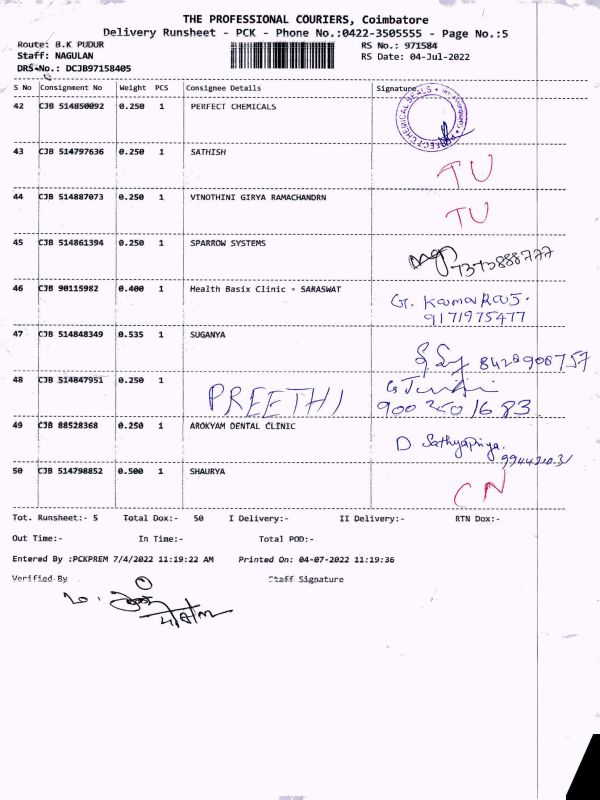 THE PROFESSIONAL COURIERS, Coimbatore
Delivery Runsheet - PCK - Phone No.:0422-3505555 - Page No.:5
Route: B.K PUDUR RS No.: 971584
Staff: NAGULAN RS Date: 04-Jul-2022
DRS-No.: DCJB97158405
S No Consignment No Weight PCS Consignee Details Signature
42 CJB 514850092 0.250 1 PERFECT CHEMICALS
43 CJB 514797636 0.250 1 SATHISH TU
44 CJB 514887073 0.250 1 VINOTHINI GIRYA RAMACHANDRN TU
45 CJB 514861394 0.250 1 SPARROW SYSTEMS
46 CJB 90115982 0.400 1 Health Basix Clinic - SARASWAT G. Kamaraj.
9171975477
47 CJB 514848349 0.535 1 SUGANYA
48 CJB 514847951 0.250 1 PREETHI
49 CJB 88528368 0.250 1 AROKYAM DENTAL CLINIC D Sathyapriya.
50 CJB 514798852 0.500 1 SHAURYA CN
Tot. Runsheet:- 5 Total Dox:- 50 I Delivery:- II Delivery:- RTN Dox:-
Out Time:- In Time:- Total POD:-
Entered By :PCKPREM 7/4/2022 11:19:22 AM Printed On: 04-07-2022 11:19:36
Verified By Staff Signature